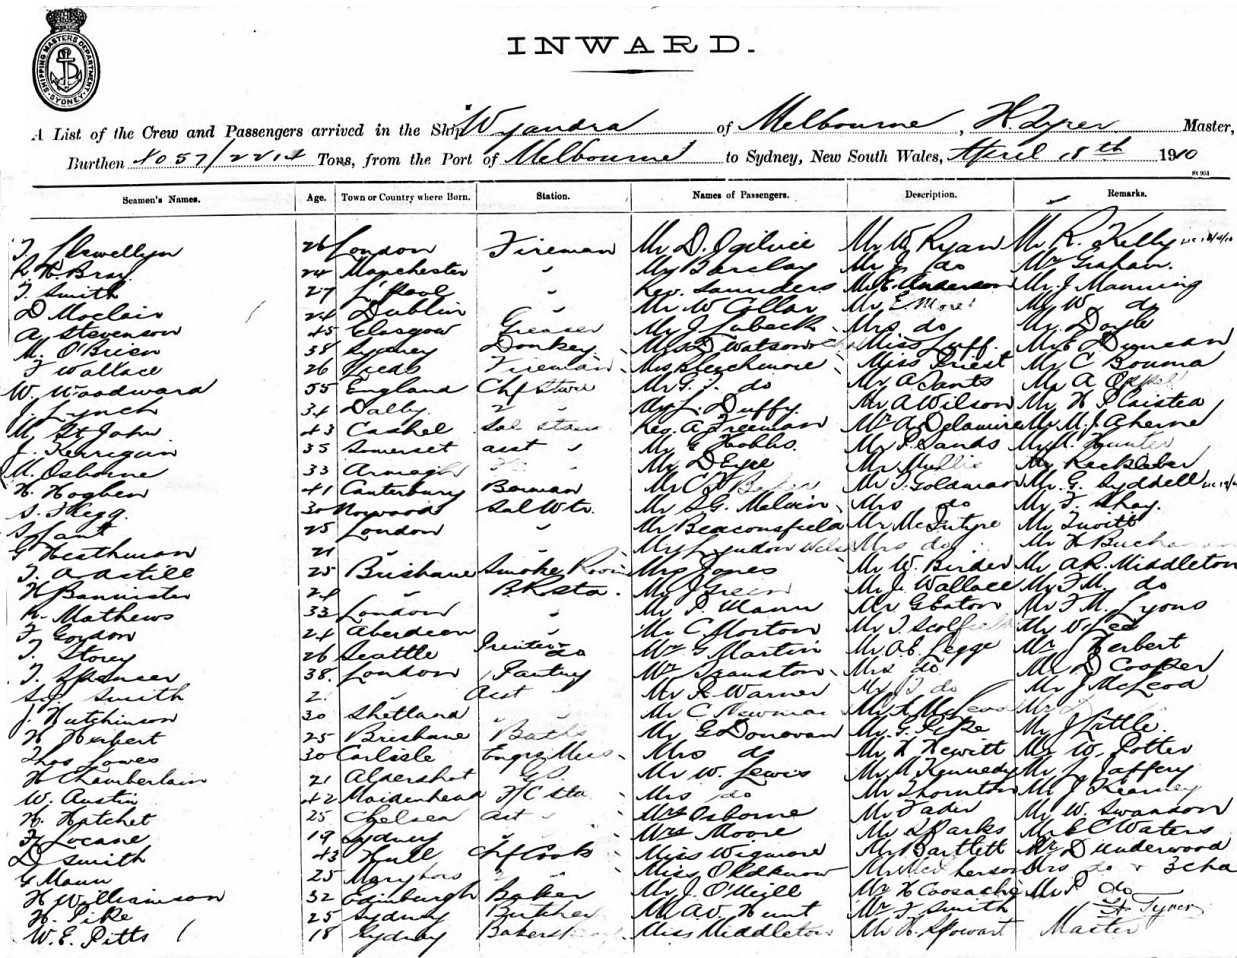 SHIPPING MASTERS DEPARTMENT SYDNEY
INWARD.
A List of the Crew and Passengers arrived in the Ship "Wyandra of Melbourne, H. Tyrer Master,
Burthen No 57/2214 Tons, from the Port of Melbourne to Sydney, New South Wales, April 18th 1910
Seamen's Names. Age. Town or Country where Born. Station. Names of Passengers. Description. Remarks.
T. Llewellyn 26 London Fireman Mr D. Ogilvie Mr W Ryan Mr R. Kelly
R H. Bray 24 Manchester " Mr Barclay Mr J. do Mr Graham.
T. Smith 27 L'Pool " Rev. Saunders Mr E. Anderson Mr J Manning
D Moclair 24 Dublin " Mr W Collar Mr E. More Mr W do
A Stevenson 45 Glasgow Greaser Mr J Lubeck Mrs do Mr Doyle
M. O'Brien 38 Sydney Donkey Mr D Watson Miss Luff. Mr E Duncan
F Wallace 26 Leeds Fireman Miss Priest Mr C Bouma
W. Woodward 55 England Chf Stwd Mr G. F. do Mr A Tants Mr A
J. Lynch 34 Dalby 2 " Mr L. Duffy. Mr A Wilson Mr H Plaisted
M. St John 43 Cashel Sal Rev. A Freeman Mr A Delamire Mr M. J. Aherne
J. Kerrigan 35 Somerset asst " Mr G Hobbs Mr P. Sands Mr Hunter
M. Osborne 33 Armagh Mr D Eyre Mr Mullis Mr Keckleber
H. Hogben 41 Canterbury Barman Mr C Mr T. Goldman Mr. G. Lyddell
S. Flegg. 30 Norwood Sal Wtr. Mr S G. Melvin Mrs do Mr F Shay.
S Gant 25 London " Mr Beaconsfield Mr McIntyre Mr Twoitt
G Hesthman 21 " " Mr Lyndon Mrs do Mr H
T. A Astill 25 Brisbane Smoke Room Mrs Jones Mr W. Birder Mr A R. Middleton
H Bannister 24 " Bk Sta. Mr J Green Mr J. Wallace Mr F M. do
R. Mathews 33 London " Mr P. Mann Mr G Eaton Mr F M. Lyons
F. Gordon 24 Aberdeen " Mr C Morton Mr T Scolfield Mr V. Lee
T. Storey 26 Seattle do Mr G Martin Mr A E. Legge Mr Herbert
T. Spencer 38. London Pantry Mr Branston Mrs do Mr D Cooper
S. J. Smith 21 " Asst Mr R. Warner Mr F. do Mr J McLeod
J. Hutchinson 30 Shetland " Mr C Newman Mr A McLeod Mr
H Herbert 25 Brisbane Baths Mr G Donovan Mr G. Pike Mr J Little.
Thos Lowes 30 Carlisle Engrs Mess Mrs do Mr H Hewitt Mr W. Potter
H Chamberlain 21 Aldershot Mr W. Lewis Mr A Kennedy Mr L. Jaffery
W. Austin 42 Maidenhead F/C Sta Mrs do Mr Thornton Mr J Kearney
H. Hatchet 25 Chelsea Ast " Mrs Osborne Mr Vader Mr W. Swanson
F. Locane 19 Sydney " Mrs Moore Mr S Parks Mr E C Waters
D Smith 43 Hull Chf Cook Miss Wigmore Mr Bartlett Mr D Underwood
G Mann 25 Maryboro 2 " Miss Oldknow Mr Mrs do + 3 chn
H Williamson 32 Edinburgh Baker Mr J. O'Neill Mr H Mr P do
H. Pike 25 Sydney Butcher Mr A V. Hunt Mr F. Smith H. Tyrer
W. E. Pitts 18 Sydney Bakers Boy Miss Middleton Mr H. Stowart Master